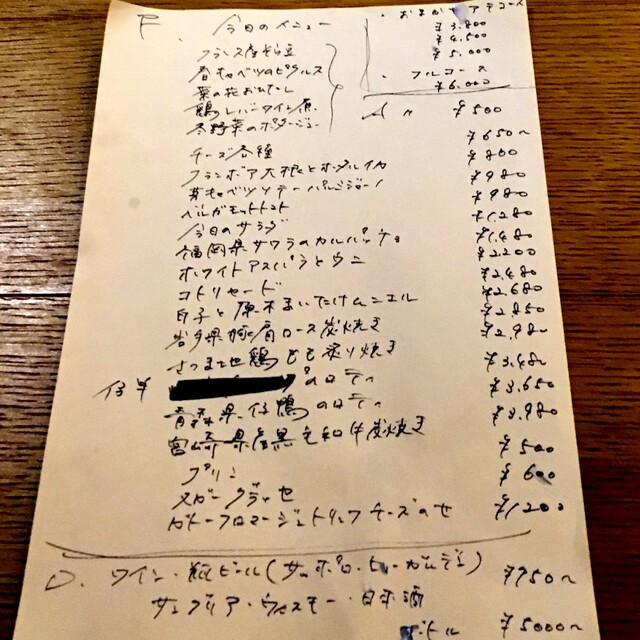 F. 今日のメニュー
フランス産
春キャベツのピクルス
菜の花おひたし
鶏レバーワイン煮
冬野菜のポタージュ
おまかせ コース
¥3,800
¥4,500
¥5,000
フルコース
¥6,000
¥500
チーズ各種 ¥650〜
フランボア大根とホタルイカ ¥800
芽キャベツソテーパルミジャーノ ¥980
ベルガモットトマト ¥980
今日のサラダ ¥1,280
福岡県サワラのカルパッチョ ¥1,480
ホワイトアスパラとウニ ¥2200
コトリヤード ¥2,480
白子と原木まいたけムニエル ¥2,680
岩手県豚肩ロース炭焼き ¥2,850
さつま地鶏もも炙り焼き ¥2,980
仔羊 のロティ ¥3,480
青森県仔鴨のロティ ¥3,650
宮崎県産黒毛和牛炭焼き ¥3,980
プリン ¥500
ヌガーグラッセ ¥600
ガトーフロマージュトリュフチーズのせ ¥1200
D. ワイン・瓶ビール(サッポロ・ヒューガルデン) ¥750〜
サングリア・ウィスキー・日本酒
ボトル ¥5000〜